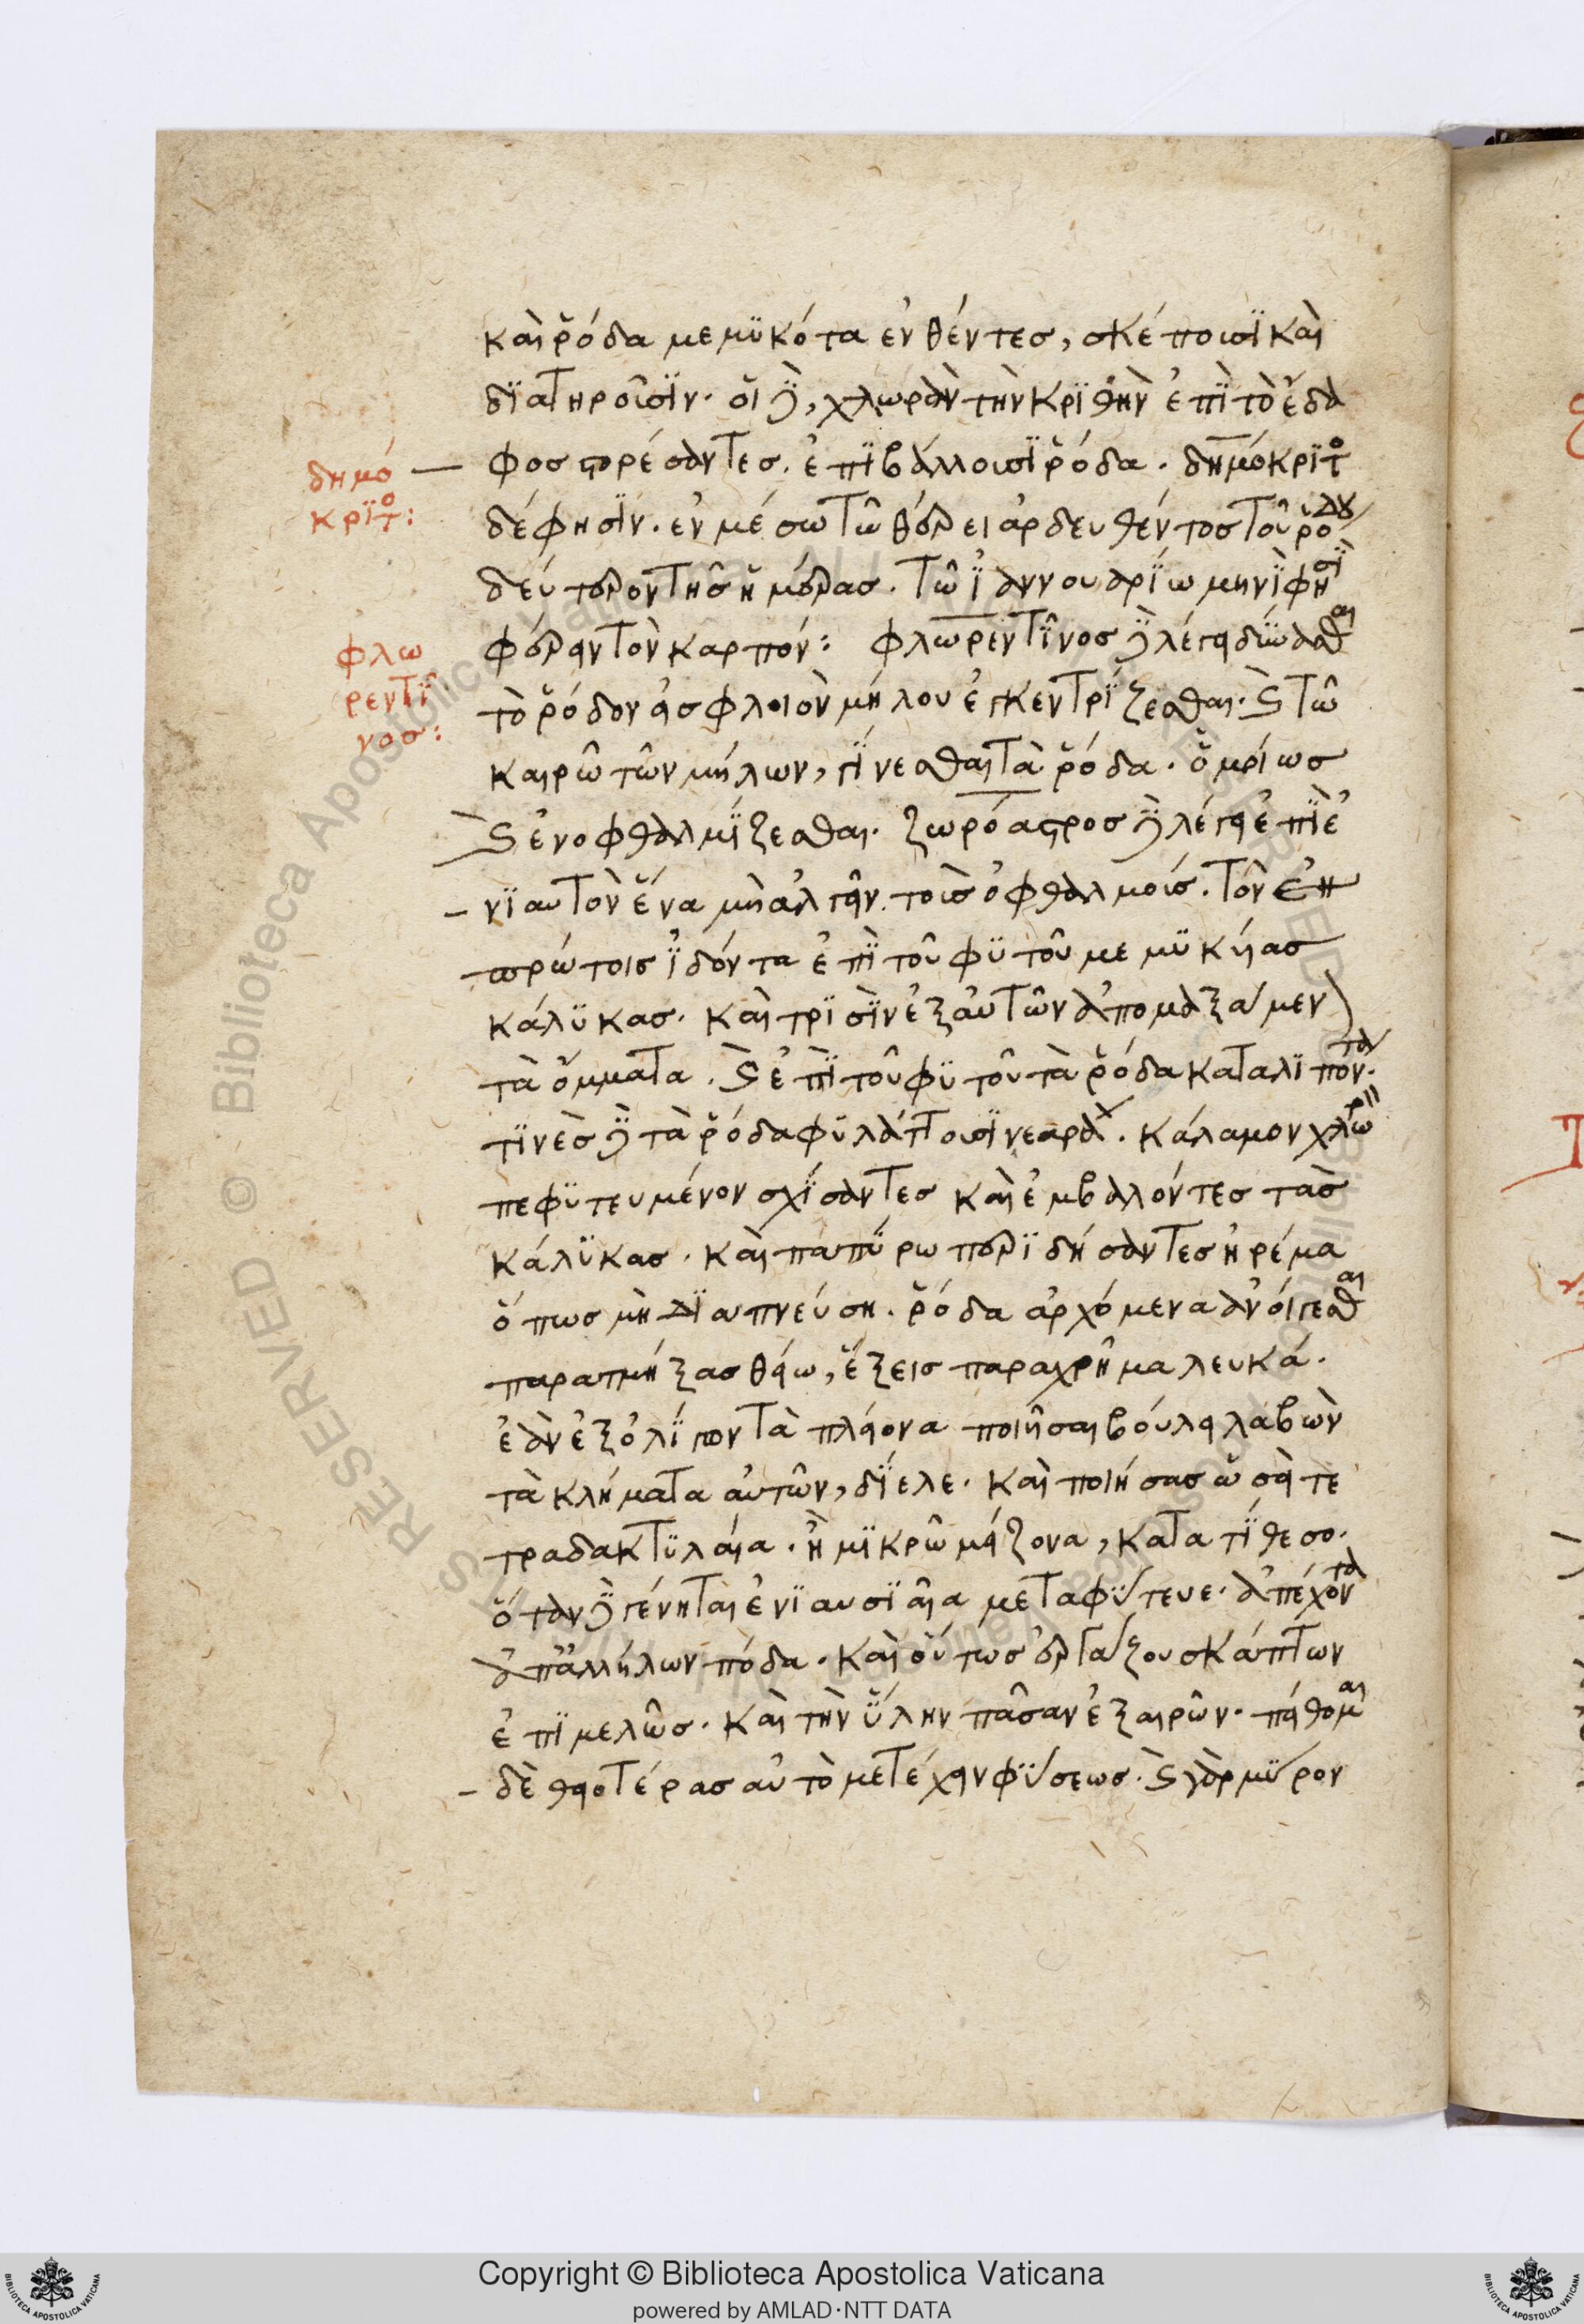 καὶ ῥόδα μεμϋκότα ἐνθέντες, σκέπουσϊ καὶ
δϊατηροῦσϊν. οἱ δὲ, χλωρὰν τὴν κρϊθὴν ἐπϊ τὸ ἔδα
φος στορέσαντες. ἐπϊβάλλουσϊ ῥόδα. δημόκρϊτο
δημό
κρϊτο:
δέ φησϊν. ἐν μέσω τῶ θέρει ἀρδευθέντος τοῦ ῥόδου
δεύτερον τῆς ἡμέρας. τῶ ἰαννουαρϊω μηνϊ φησϊ
φέρειν τὸν καρπόν: φλωρεντῖνος δὲ λέγει δϊώδασθαι
φλω
ρεντϊ
νος:
τὸ ῥόδον εἰς φλοιὸν μήλου ἐγκεντρϊζεσθαι. καὶ τῶ
καιρῶ τῶν μήλων, γϊνεσθαι τὰ ῥόδα. ὁμοίως
καὶ ἐνοφθαλμϊζεσθαι. ζωρόαστρος δὲ λέγει ἐπϊ ἐ
νϊαυτὸν ἕνα μὴ ἀλγεῖν τοῖς ὀφθαλμοῖς. τὸν ἐν
πρώτοις ἰδόντα ἐπϊ τοῦ φϋτοῦ μεμϋκυίας
κάλϋκας. καὶ τρϊσϊν ἐξ αὐτῶν ἀπομαξάμεν
τὰ ὄμματα. καὶ ἐπϊ τοῦ φϋτοῦ τὰ ῥόδα καταλϊπόντα.
τϊνὲς δὲ τὰ ῥόδα φϋλάττουσϊ νεαρὰ. κάλαμον χλωρὸν
πεφϋτευμένον σχϊσαντες καὶ ἐμβαλόντες τὰς
κάλϋκας. καὶ παπϋρω περϊδήσαντες ἠρέμα
ὅπως μὴ δϊαπνεύση. ῥόδα ἀρχόμενα ἀνοίγεσθαι
παρατμήξας θείω, ἕξεις παραχρῆμα λευκά.
ἐὰν ἐξ ὀλϊγων τὰ πλείονα ποιῆσαι βούλει λαβὼν
τὰ κλήματα αὐτῶν, δϊελε. καὶ ποιήσας ὡσεὶ τε
τραδακτϋλαῖα. ἢ μϊκρῶ μείζονα, κατατϊθεσο.
ὅταν δὲ γένηται ἐνϊαυσϊαῖα μεταφϋτευε. ἀπέχοντα
ἀπ' ἀλλήλων πόδα. καὶ οὕτως ἐργάζου σκάπτων
ἐπϊμελῶς. καὶ τὴν ὕλην πᾶσαν ἐξαιρῶν. πείθομαι
δὲ θειοτέρας αὐτὸ μετέχειν φϋσεως. καὶ γὰρ μϋρον
Copyright © Biblioteca Apostolica Vaticana
powered by AMLAD·NTT DATA